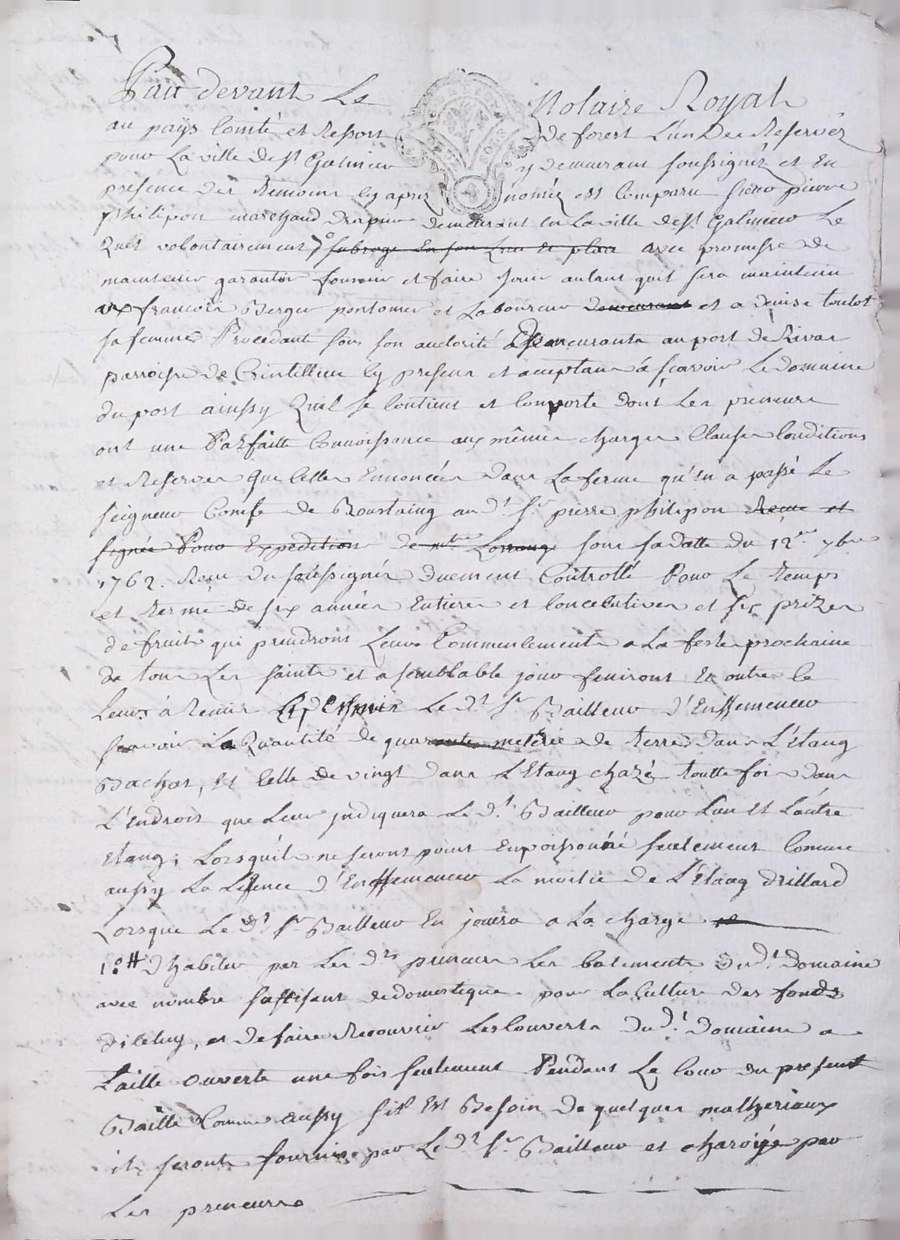 Par devant Le Notaire Royal
au pays Comté et Ressort de forest L'un Des Reservéz
pour La ville de St Galmier y demeurant soussigné et En
presence des temoins cy apres nomméz est Comparu sieur pierre
philipon marchand drapier demeurant en La ville de St Galmier Le
quel volontairement subroge En son Lieu et place avec promesse de
maintenir garantir fournir et faire jouir autant quil sera maintenu
aux francois Berger pontonier et Laboureur demeurant et a denise toulot
sa femme Procedant sous son authorité Demeurants au port de Rivas
parroisse de Cintilleu cy presens et aceptans a scavoir Le domaine
du port ainssy quel se Contient et Comporte dont Les preneurs
ont une Parfaitte Connoissance aux mêmes charges Clauses Conditions
et Reserves que celles Ennoncées dans La ferme qu'en a passé Le
seigneur Comte de Roustaing au dt Sr pierre philipon Recue et
signée Pour Expedition de sous sa datte du 12me 7bre
1762. Recu du soussigné duement Controllé Pour Le temps
et terme de six années Entieres et Concecutives et six prizes
de fruit qui prendront Leurs Commencements a La feste prochaine
de tous Les saints et a semblable jour finiront En outre ce
Leurs a Remis Le dt Sr Bailleur d'Enssemencer
scavoir La quantité de quarante meterée de terre dans L'Etang
Bachas, et Celle de vingt dans L'Etang chazé toutte fois dans
L'Endroit que Leur jndiquera Le dt Bailleur pour L'un et L'autre
Etang, Lorsquils ne seront point Enpoissonné seulement Comme
aussy La Licence d'Enssemencer La moitié de L'Etang drillard
Lorsque Le dt Sr Bailleur En jouira a La charge
1° d'habiter par Les dts preneurs Les batements du dt domaine
avec nombre suffisant de domestique pour La Culture des fonds
d'icelui, et de faire Recouvrir Les Couverts du dt domaine a
taille ouverte une fois seulement Pendant Le Cour du present
Baille Comme aussy sil Est Besoin de quelques matheriaux
ils seront fournis par Le dt Sr Bailleur et charoyé par
Les preneurs